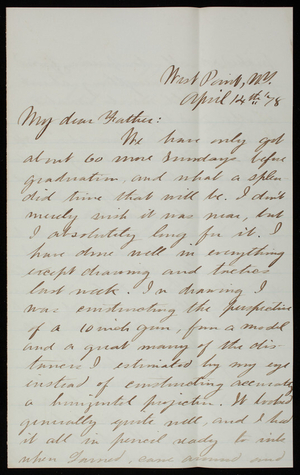 West Point, N.Y.
April 14th '78
My dear Father:
We have only got
about 60 more Sundays before
graduation, and what a splen-
did time that will be. I don't
merely wish it was near, but
I absolutely long for it. I
have done well in everything
except drawing and tactics
last week. In drawing I
was constructing the perspective
of a 10 inch gun, from a model
and a great many of the dis-
tances I estimated by my eye
instead of constructing accurately
a horizontal projection. It looked
generally quite well, and I had
it all in pencil ready to ink
when Larned, came around and